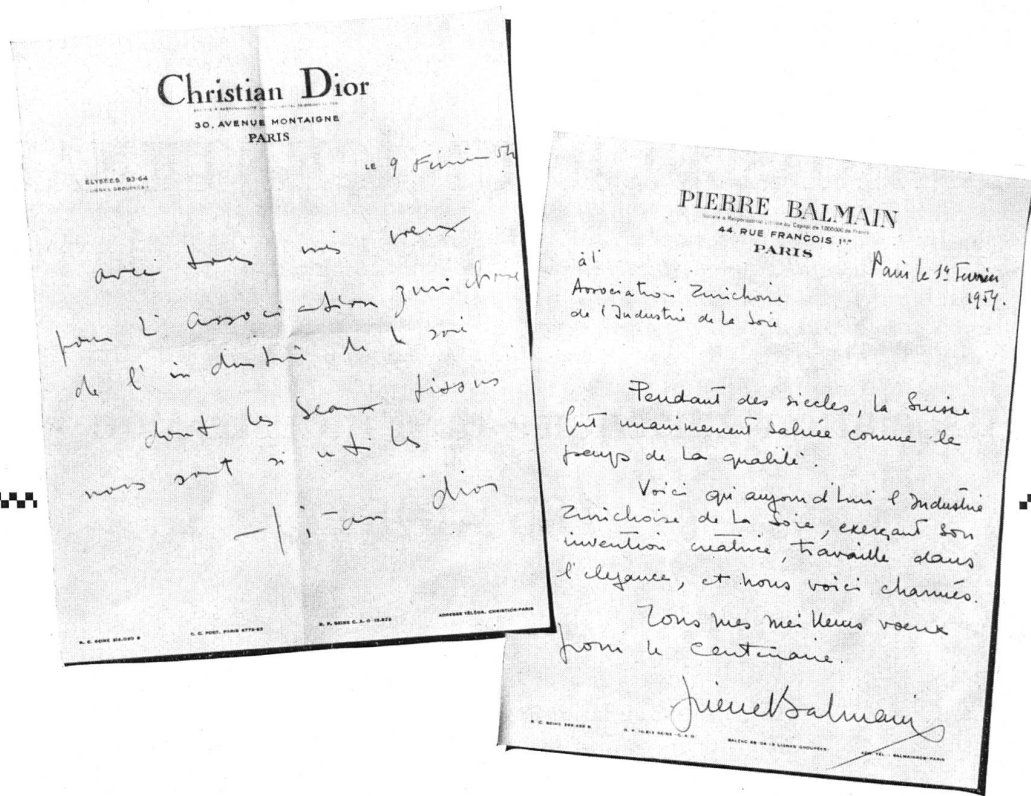 Christian Dior
30, AVENUE MONTAIGNE
PARIS
ÉLYSÉES 93-64
LIGNES GROUPÉES
LE 9 Février 54
avec tous mes vœux
pour l'association zurichoise
de l'industrie de la soie
dont les beaux tissus
nous sont si utiles
dior
C. C. POST. PARIS
ADRESSE TÉLÉGR. CHRISTIOR-PARIS
PIERRE BALMAIN
Société à Responsabilité Limitée au Capital de
44, RUE FRANÇOIS 1er
PARIS
Paris le Février
1954.
à l'
Association Zurichoise
de l'Industrie de la Soie
Pendant des siècles, la Suisse
fut unanimement saluée comme le
pays de la qualité.
Voici qu'aujourd'hui l'Industrie
Zurichoise de la Soie, exerçant son
invention créatrice, travaille dans
l'élégance, et nous voici charmés.
Tous mes meilleurs vœux
pour le Centenaire.
Pierre Balmain
LIGNES GROUPÉES
BALMAINOS-PARIS